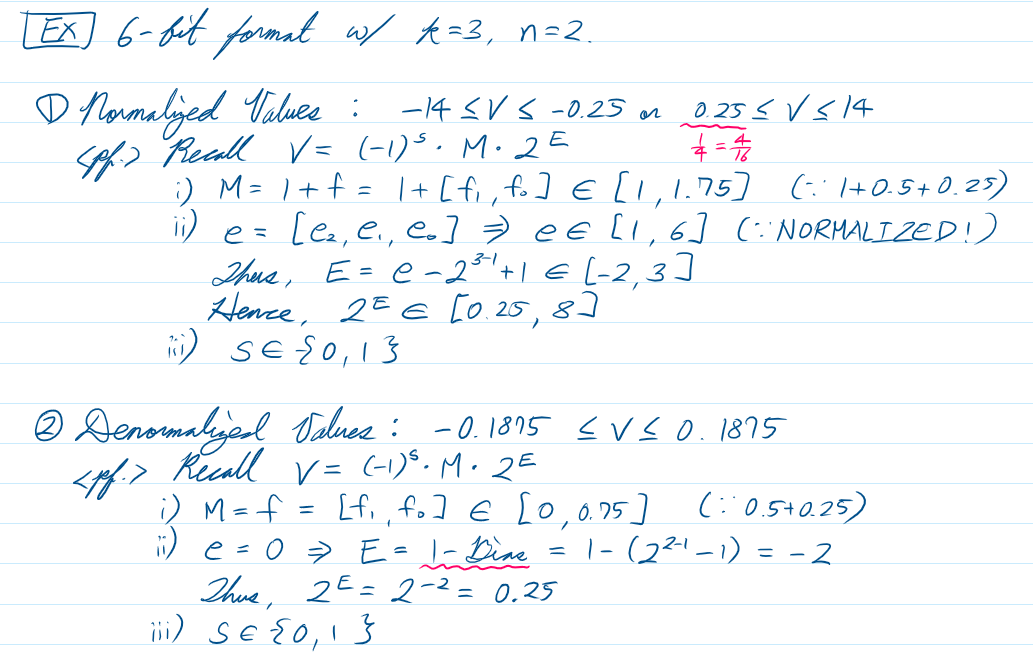 EX 6-bit format w/ k=3, n=2.
① Normalized Values : -14 ≤ V ≤ -0.25 or 0.25 ≤ V ≤ 14
<pf.> Recall V = (-1)^s · M · 2^E 1/4 = 4/16
i) M = 1+f = 1+[f₁, f₀] ∈ [1, 1.75] (∵ 1+0.5+0.25)
ii) e = [e₂, e₁, e₀] ⇒ e ∈ [1, 6] (∵ NORMALIZED!)
Thus, E = e - 2^(3-1) + 1 ∈ [-2, 3]
Hence, 2^E ∈ [0.25, 8]
iii) S ∈ {0, 1}
② Denormalized Values : -0.1875 ≤ V ≤ 0.1875
<pf.> Recall V = (-1)^s · M · 2^E
i) M = f = [f₁, f₀] ∈ [0, 0.75] (∵ 0.5+0.25)
ii) e = 0 ⇒ E = 1 - Bias = 1 - (2^(2-1) - 1) = -2
Thus, 2^E = 2^-2 = 0.25
iii) S ∈ {0, 1}